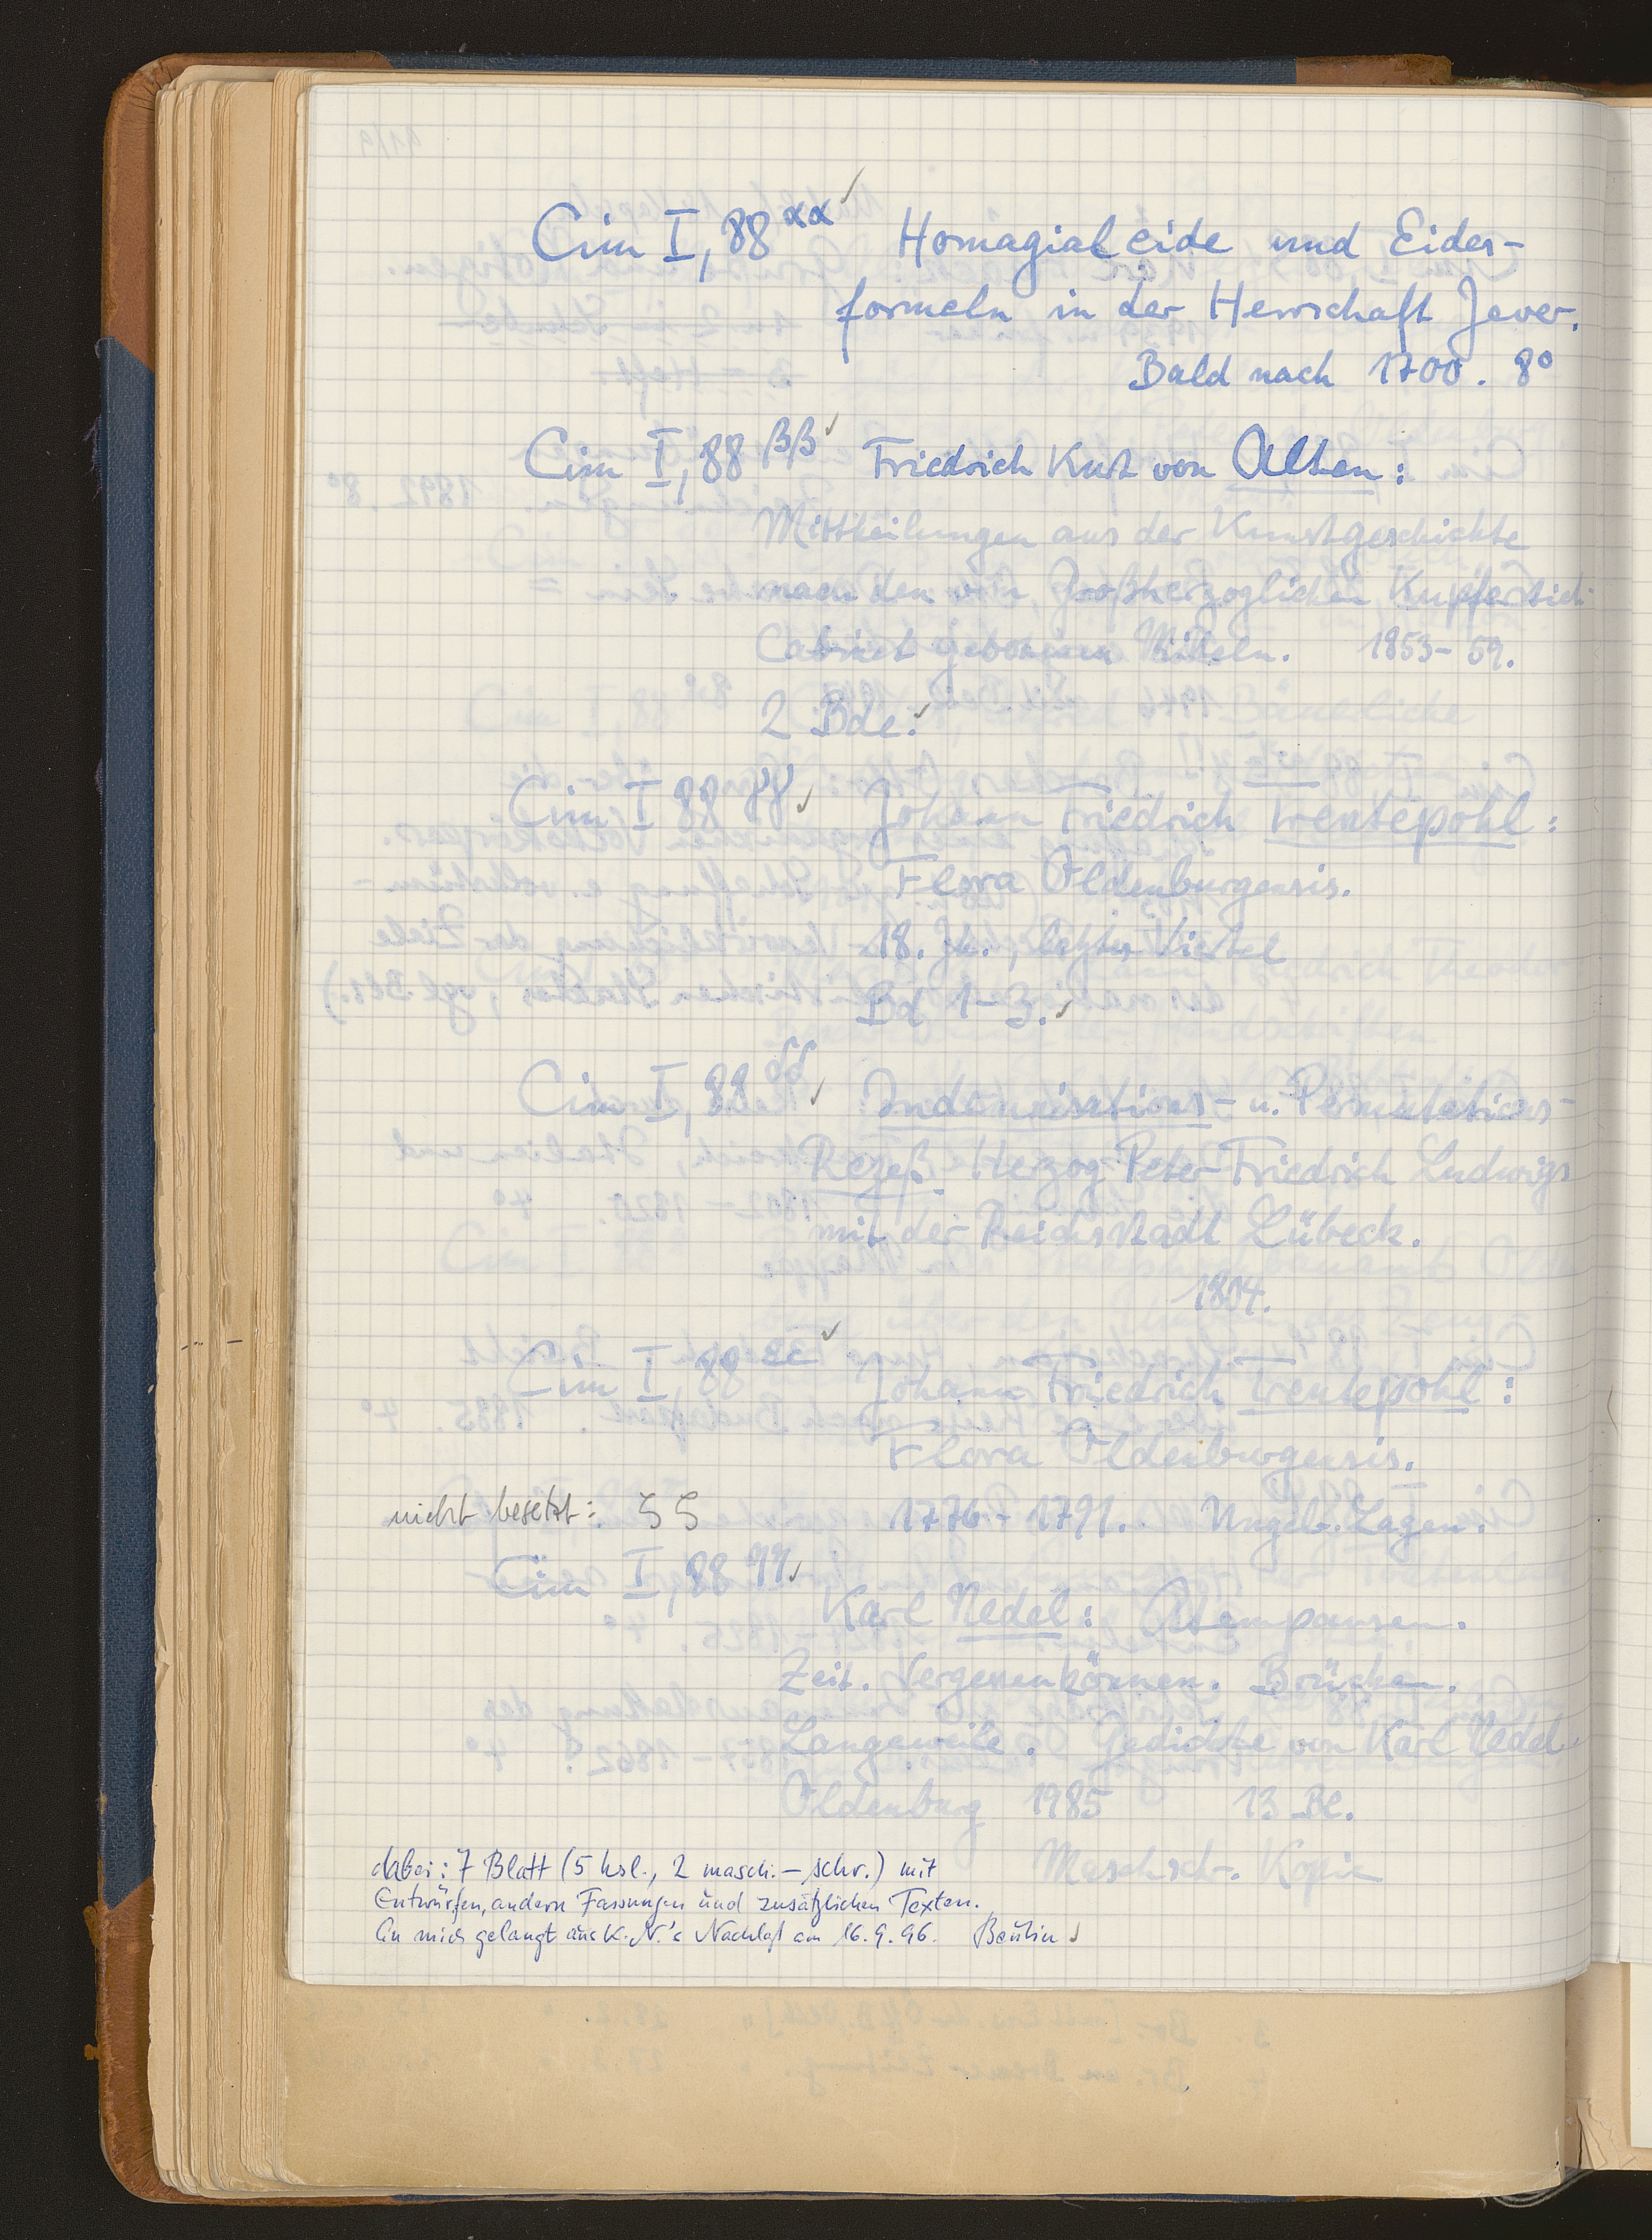 Cim I, 88 αα ✓ Homagialeide und Eides-
formeln in der Herrschaft Jever.
Bald nach 1700. 8°
Cim I, 88 ββ ✓ Friedrich Kurt von Alten:
Mittheilungen aus der Kunstgeschichte
nach den vom Großherzoglichen Kupferstich
Cabinet gebotenen Mitteln. 1853-59.
2 Bde. ✓
Cim I 88 γγ ✓ Johann Friedrich Trentepohl:
Flora Oldenburgensis.
18. Jh., letztes Viertel
Bd 1-3. ✓
Cim I, 88 δδ ✓ Indemnisations- u. Permutations-
Rezeß Herzog Peter Friedrich Ludwigs
mit der Reichsstadt Lübeck.
1804.
Cim I, 88 εε ✓ Johann Friedrich Trentepohl:
Flora Oldenburgensis.
nicht besetzt: ζζ 1776-1791. Ungeb. Lagen.
Cim I, 88 ηη ✓
Karl Nedel: Atempausen.
Zeit. Vergessenkönnen. Brücken.
Langeweile. Gedichte von Karl Nedel.
Oldenburg 1985 13 Bl.
Maschschr. Kopie
dabei: 7 Blatt (5 hsl., 2 masch.-schr.) mit
Entwürfen, andern Fassungen und zusätzlichen Texten.
An mich gelangt aus K. N.'s Nachlaß am 16.9.96. ✓